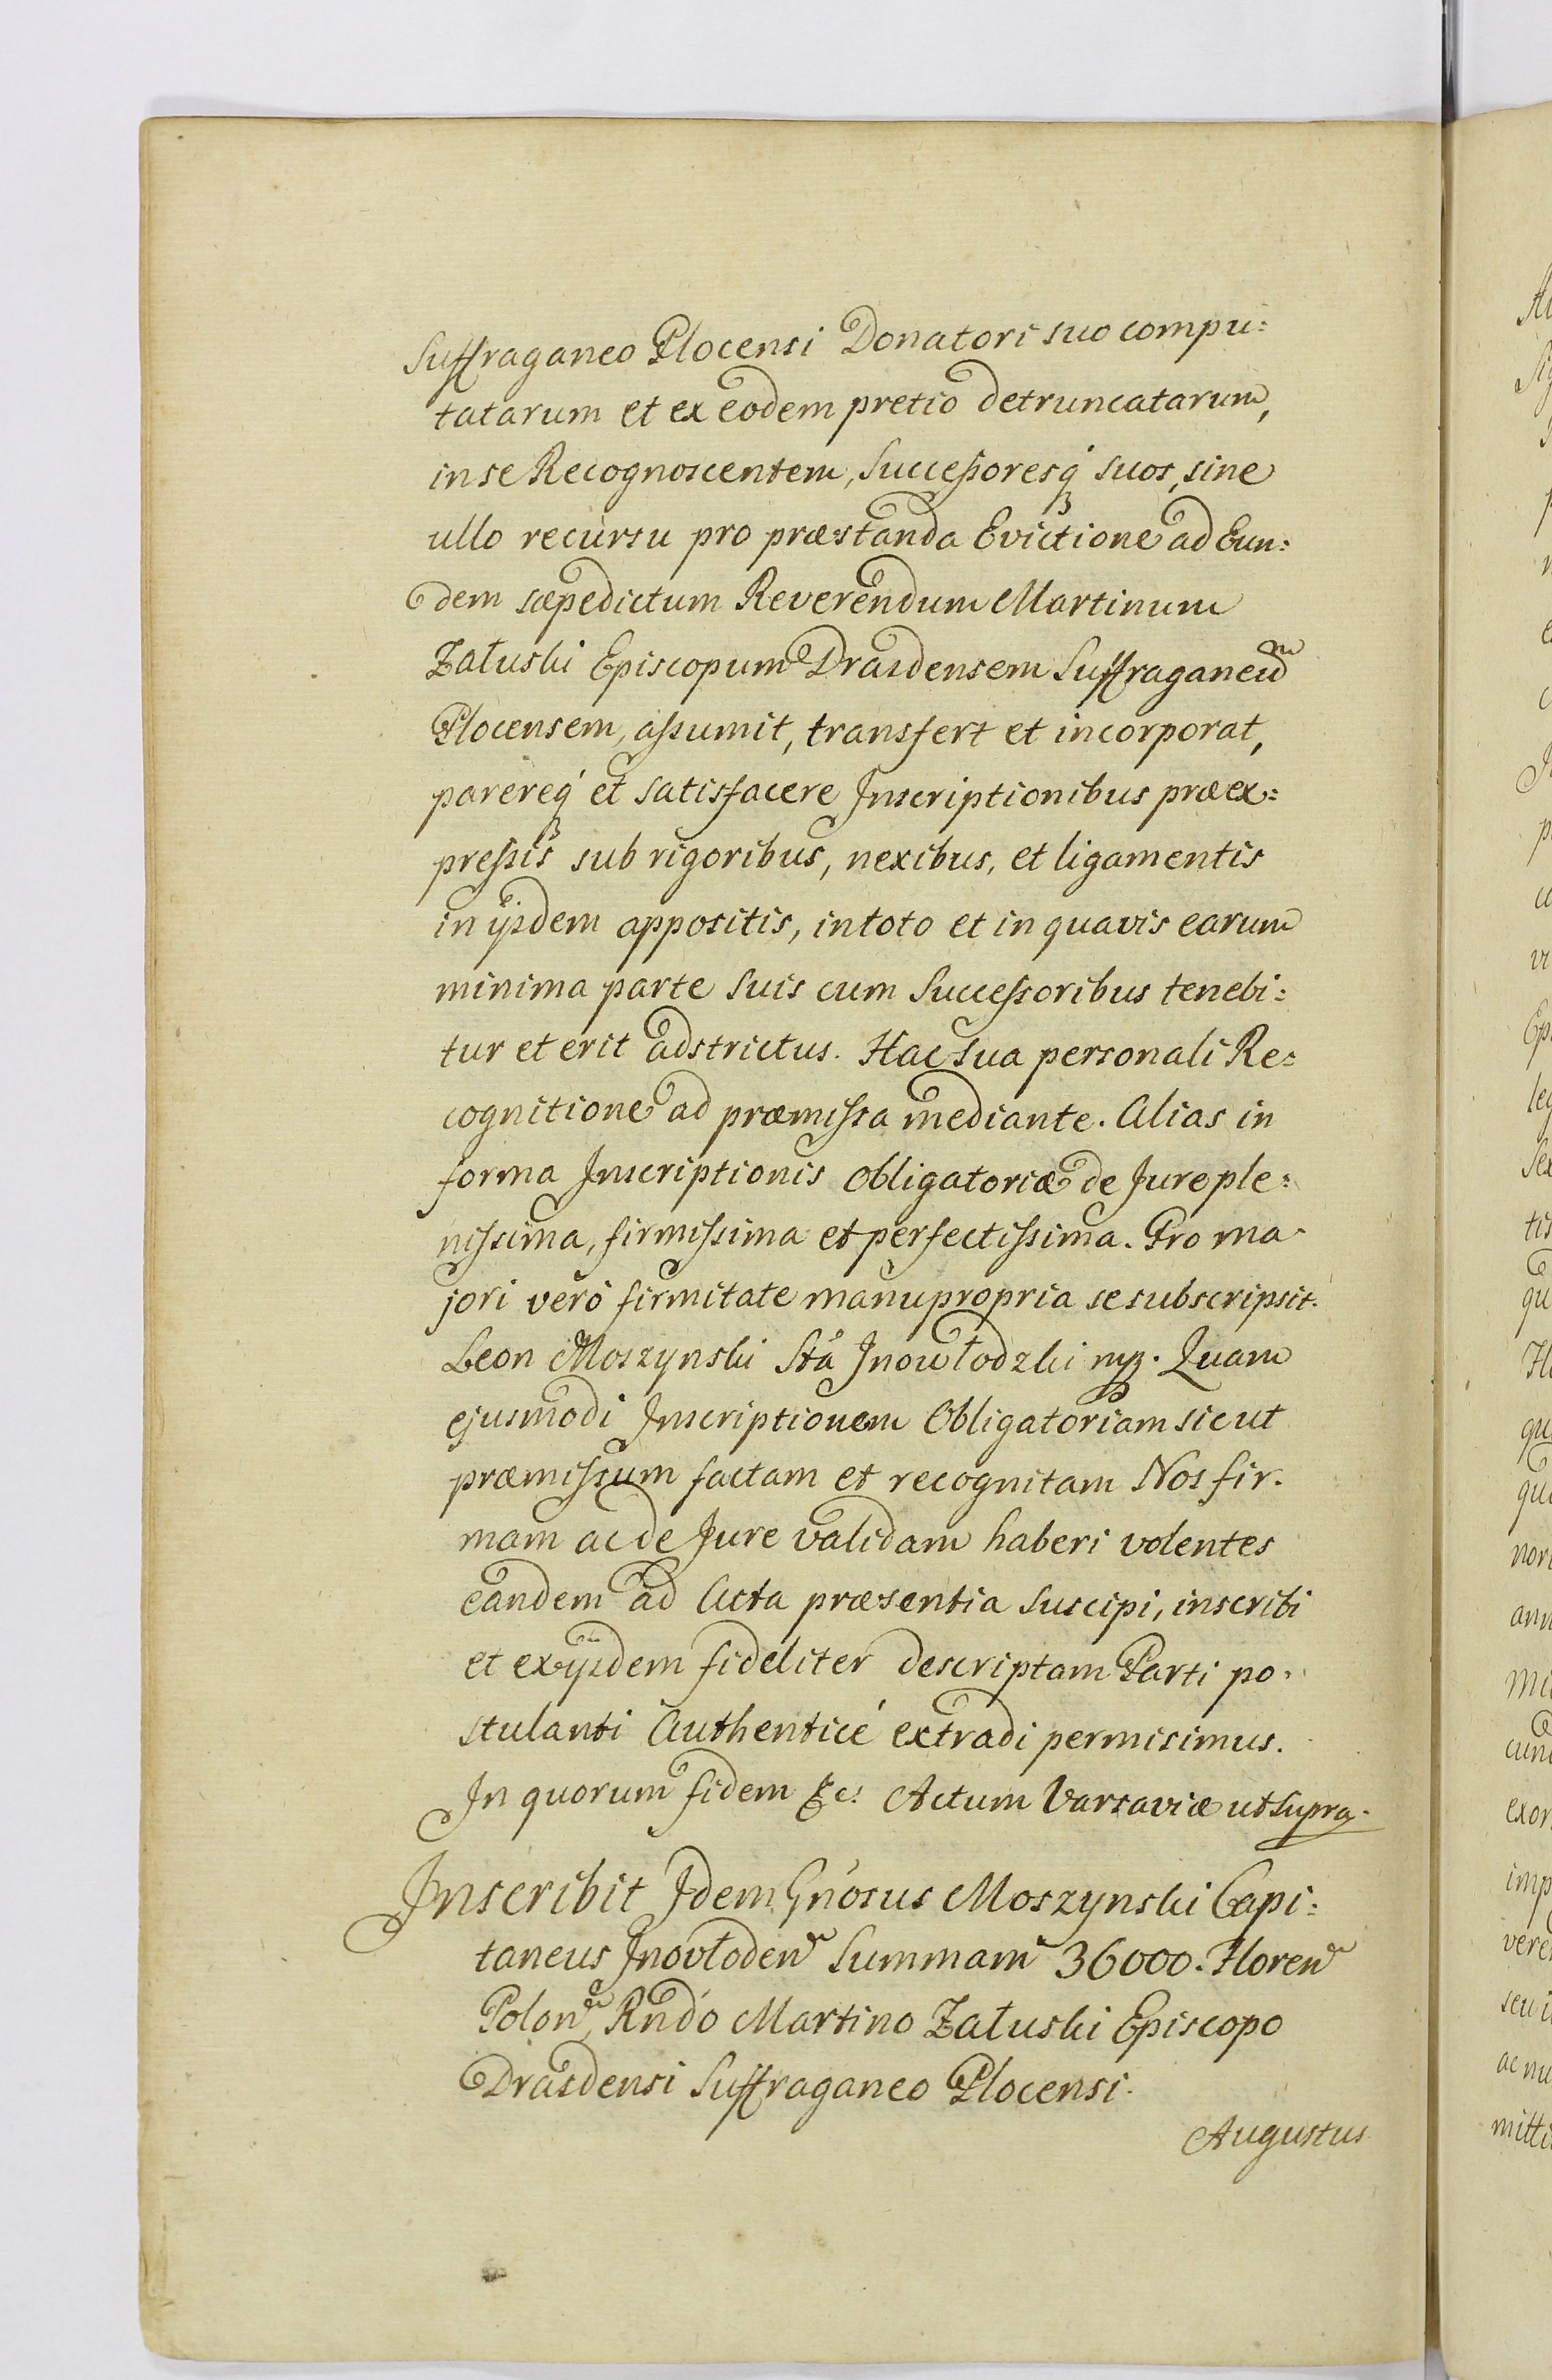 Suffraganeo Plocensi Donatori suo compu:
tatarum et ex eodem pretio detruncatarum,
in se Recognoscentem, Successoresq́ suos, sine
ullo recursu pro præstanda Evictione ad Eun:
dem sæpedictum Reverendum Martinum
Załuski Episcopum Drasdensem Suffraganeum
Plocensem, assumit, transfert et incorporat,
parereq́ et satisfacere Inscriptionibus præex:
pressis sub rigoribus, nexibus, et ligamentis
in ijsdem appositis, in toto et in quavis earum
minima parte suis cum Successoribus tenebi:
tur et erit adstrictus. Hac sua personali Re:
cognitione ad præmissa mediante. Alias in
forma Inscriptionis Obligatoriæ de Jure ple:
nissima, firmissima et perfectissima. Pro ma-
jori verò firmitate manu propria se subscripsit.
Leon Moszynski Stã Inowłodzki mp. Quam
ejusmodi Inscriptionem Obligatoriam sicut
præmissum factam et recognitam Nos fir-
mam ac de Jure validam haberi volentes
eandem ad Acta præsentia suscipi, inscribi
et ex ijsdem fideliter descriptam Parti po-
stulanti Authenticé extradi permisimus.
In quorum fidem &c: Actum Varsaviæ ut supra.
Inscribit Idem Gnosus Moszynski Capi:
taneus Inovłoden Summam 36000. Floren
Polon, Rndo Martino Załuski Episcopo
Drasdensi Suffraganeo Plocensi.
Augustus